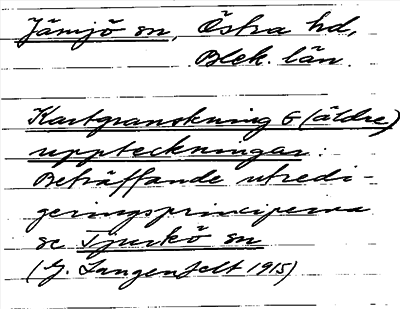 Jämjö sn, Östra hd,
Blek. län.
Kartgranskning & (äldre)
uppteckningar:
Beträffande utredi-
geringsprinciperna
se Tjurkö sn
(G. Langenfelt 1915)